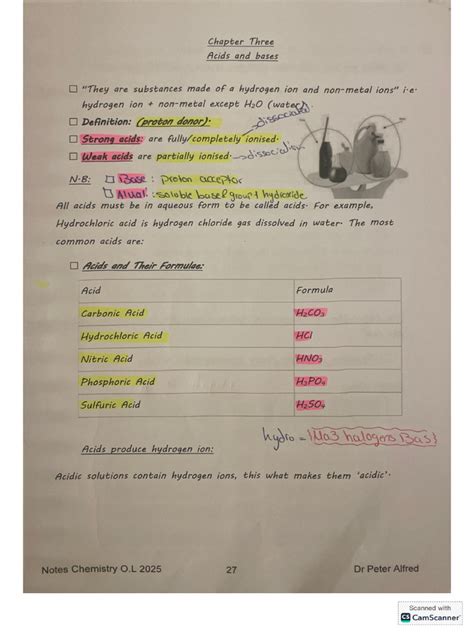 Chapter Three
Acids and bases
"They are substances made of a hydrogen ion and non-metal ions" i.e.
hydrogen ion + non-metal except H₂O (water).
dissociated
Definition: (proton donor).
Strong acids: are fully/completely ionised.
Weak acids are partially ionised. → dissociation
N.B: Base: proton acceptor
Alkali: soluble base
hydroxide
All acids must be in aqueous form to be called acids. For example,
Hydrochloric acid is hydrogen chloride gas dissolved in water. The most
common acids are:
Acids and Their Formulae:
Acid Formula
Carbonic Acid H₂CO₃
Hydrochloric Acid HCl
Nitric Acid HNO₃
Phosphoric Acid H₃PO₄
Sulfuric Acid H₂SO₄
hydro =
halogens
Acids produce hydrogen ion:
Acidic solutions contain hydrogen ions, this what makes them 'acidic'.
Notes Chemistry O.L 2025 27 Dr Peter Alfred
Scanned with
CS CamScanner